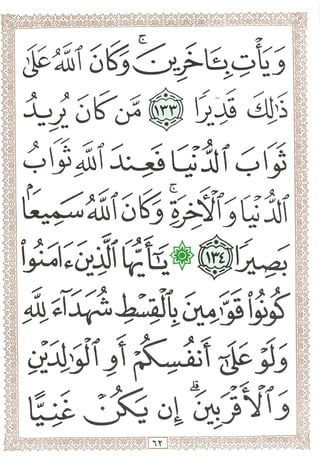 وَيَأْتِ بِـَٔاخَرِينَ ۚ وَكَانَ ٱللَّهُ عَلَىٰ
ذَٰلِكَ قَدِيرًا ١٣٣ مَّن كَانَ يُرِيدُ
ثَوَابَ ٱلدُّنْيَا فَعِندَ ٱللَّهِ ثَوَابُ
ٱلدُّنْيَا وَٱلْأَخِرَةِ ۚ وَكَانَ ٱللَّهُ سَمِيعًۢا
بَصِيرًا ١٣٤ ۞ يَـٰٓأَيُّهَا ٱلَّذِينَ ءَامَنُوا۟
كُونُوا۟ قَوَّٰمِينَ بِٱلْقِسْطِ شُهَدَآءَ لِلَّهِ
وَلَوْ عَلَىٰٓ أَنفُسِكُمْ أَوِ ٱلْوَٰلِدَيْنِ
وَٱلْأَقْرَبِينَ ۚ إِن يَكُنْ غَنِيًّا
٦٢